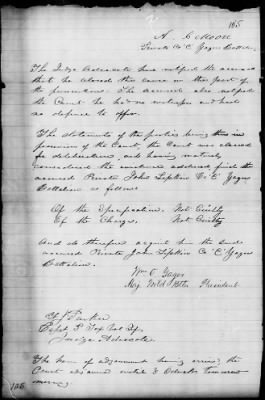 165
A. C. Moore
Private Co "C" Yagers Battalion
The Judge Advocate has notified the accused
that he closed this cause on the part of
the prosecution. The accused also notified
the Court he had no witnesses and had
no defence to offer.
The statements of the parties being thus in
possession of the Court, the Court was cleared
for deliberation, and having maturely
considered the evidence adduced find the
accused Private John Lipkin Co "C" Yagers
Battalion as follows
Of the Specification. Not Guilty
Of the Charge. Not Guilty
And do therefore acquit him the said
accused Private John Lipkin Co "C" Yagers
Battalion.
Wm O. Yager
Maj President
Parker
Tex Vol
Judge Advocate
The hour of adjournment having arrived, the
Court adjourned until 9 O'clock tomorrow
morning